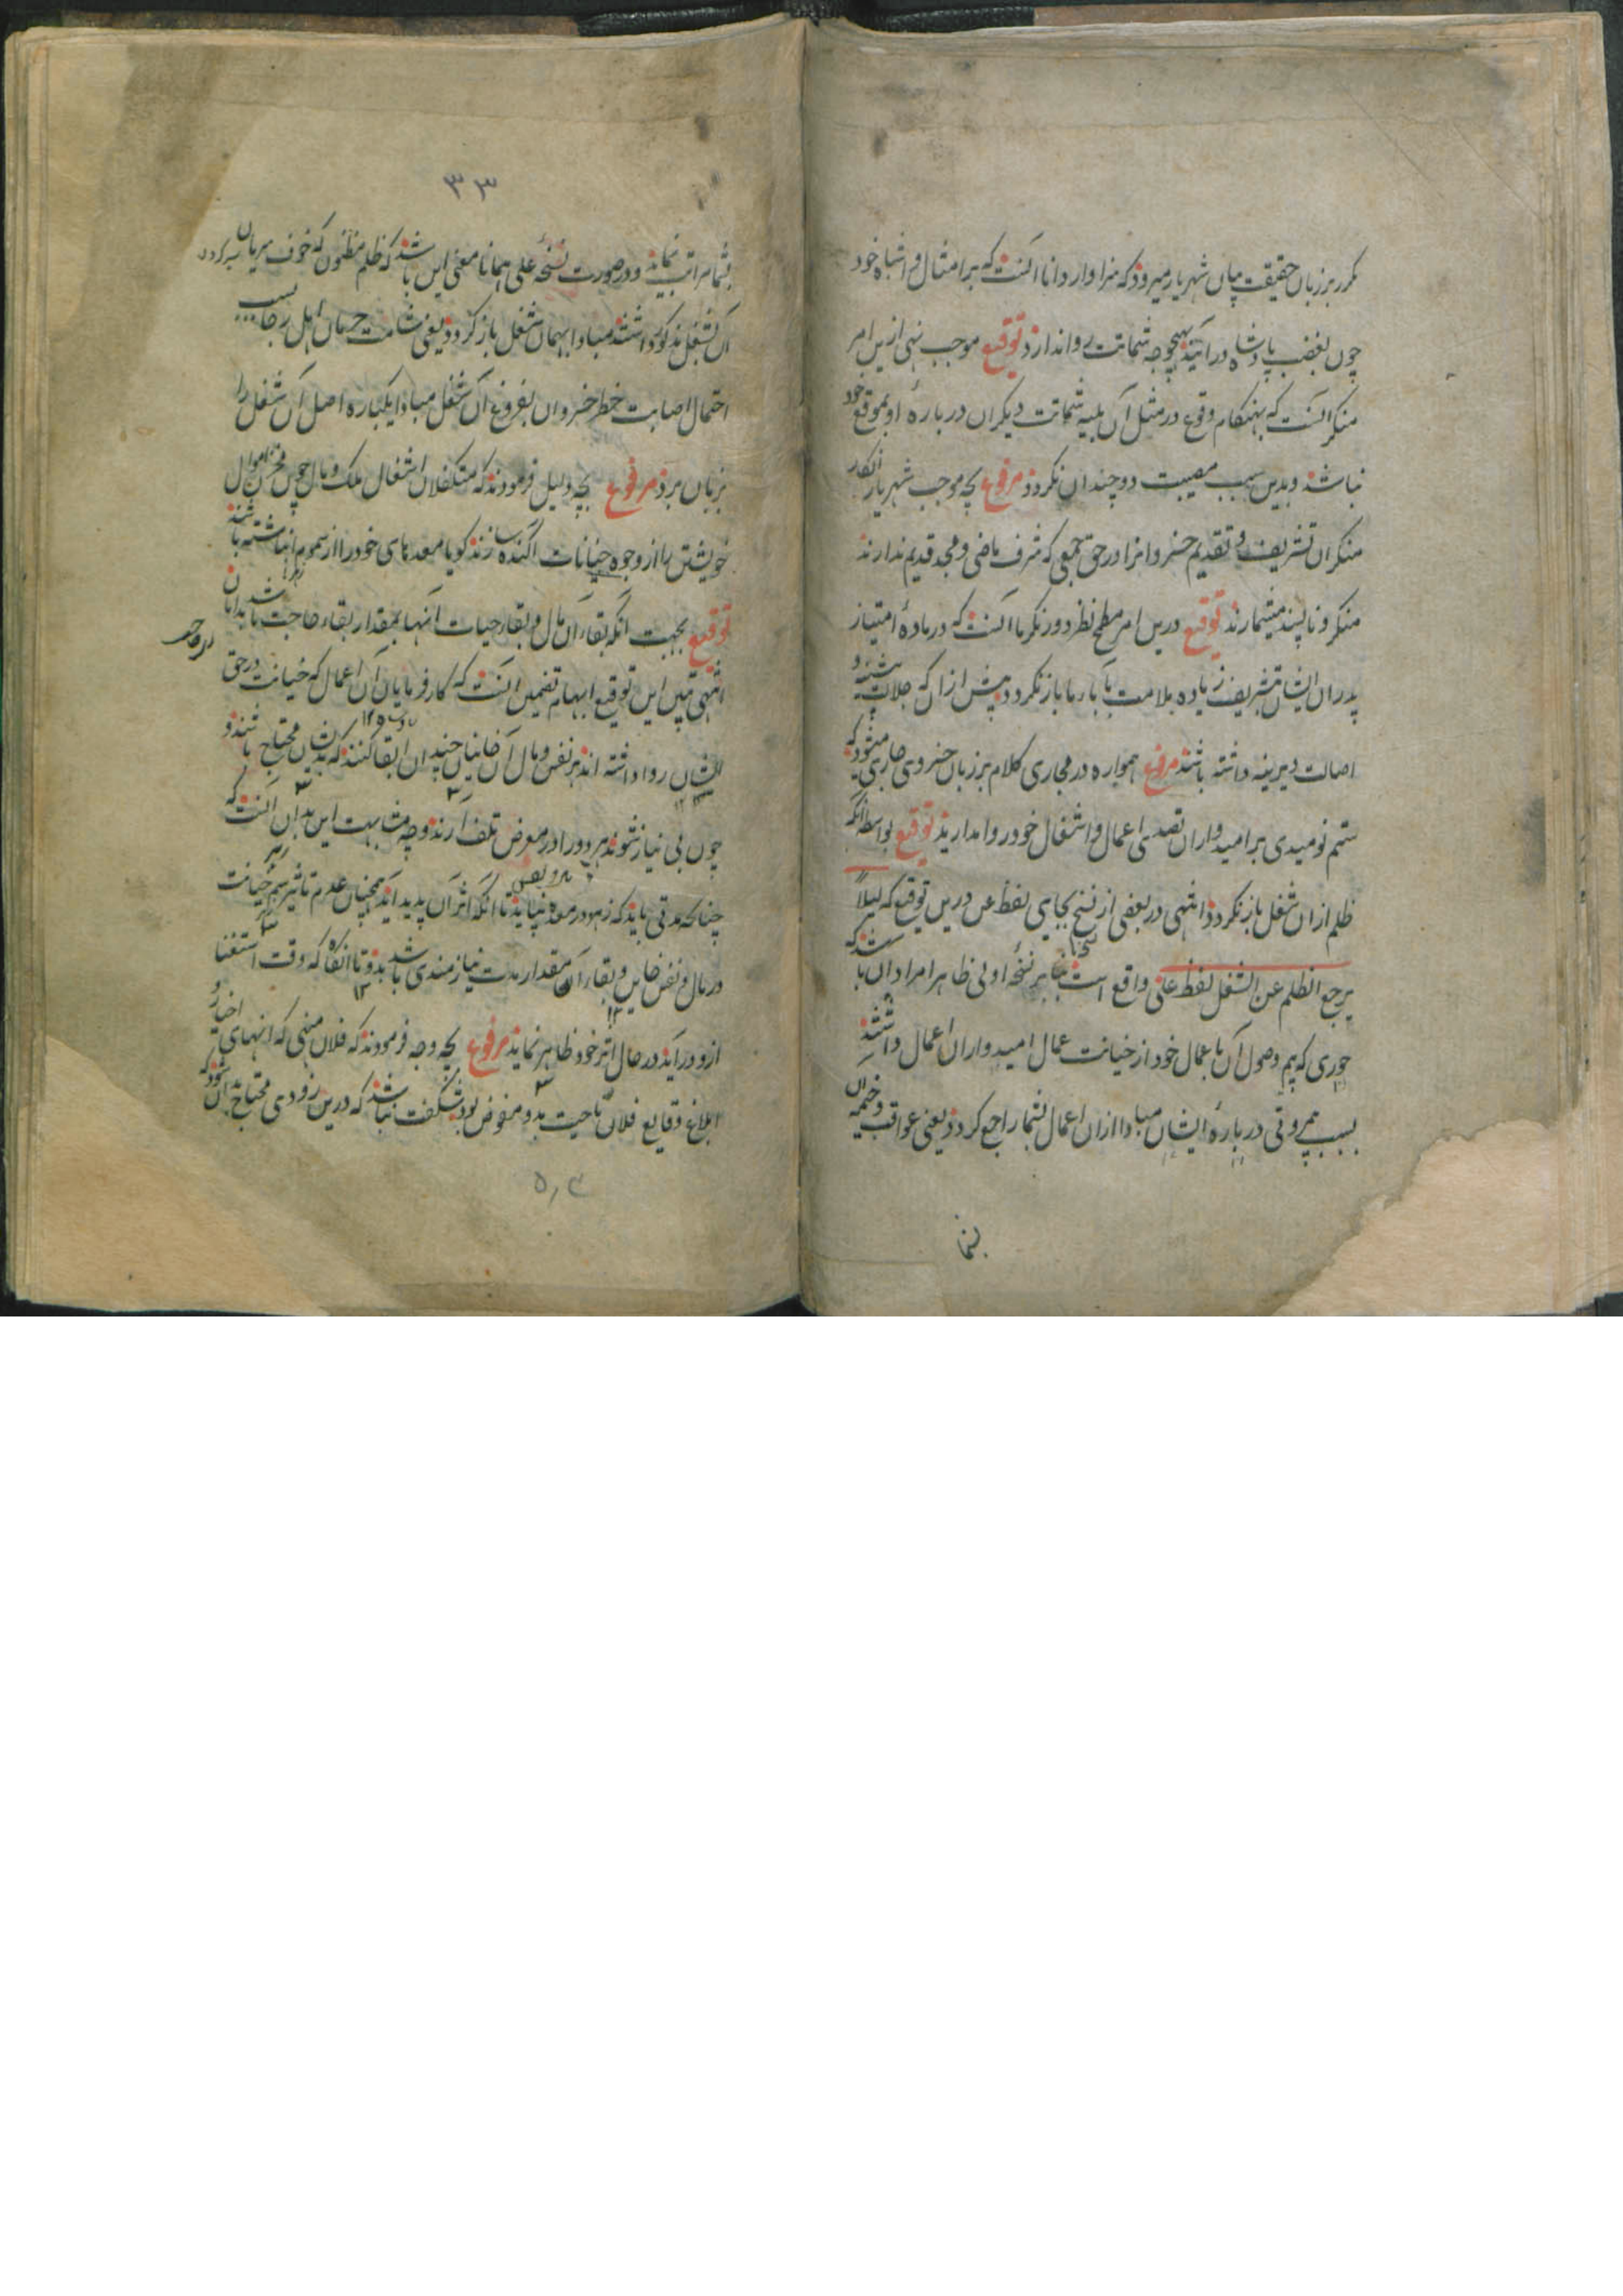 مکرر بر زبان حقیقت بیان شهریار میرود که سزاوار دانا آنست که بر امثال و اشباه خود
چون بغضب پادشاه درآیند بهیچوجه شماتت روا ندارد توقیع موجب نهی ازین امر
منکر آنست که بهنگام وقوع در مثل آن بلیه شماتت دیگران درباره او بموقع خود
نباشد و بدین سبب مصیبت دوچندان نگردد مرفوع بچه موجب شهریار انکار
منکران تشریف و تقدیم خسروانرا در حق جمعی که شرف ماضی و مجد قدیم ندارند
منکر و ناپسند میشمارند توقیع درین امر مطمح نظر دوربین ما آنست که در ماده امتیاز
پدران ایشان بتشریف زیاده ملامت بآباء ما باز نگردد پیش ازان که جلالت پیشینه و
اصالت دیرینه داشته باشند مرفوع همواره در مجاری کلام بر زبان خسروی جاری میشود که
ستم نومیدی بر امیدواران تصدی اعمال و اشغال خود روا مدارید توقیع بواسطه آنکه
ظلم ازان شغل باز نگردد انتهی در بعضی از نسخ بجای لفظ عن درین توقیع که لیلا
یرجع الظلم عن الشغل لفظ علی واقع است بنابر نسخه اولی ظاهرا مراد آن باشد که
جوری که بیم وصول آن باعمال خود از خیانت عمال امیدواران اعمال داشتند
بسبب بیمروتی درباره ایشان مبادا ازان اعمال بشما راجع گردد یعنی عواقب وخیمه آن
بشما
۳۳
بشما سرایت نماید و در صورت نسخه علی همانا معنی این باشد که ظلم مظنون که خوف سریان
آن بشغل مذکور داشتند مبادا بهمان شغل باز گردد یعنی شامت حرمان اهل رجا بسبب
احتمال اصابت خطر خسروان بفروغ آن شغل مبادا یکباره اصل آن شغل را
بزیان برد مرفوع بچه دلیل فرمودند که متکفلان اشغال ملک و مال چون مخزن اموال
خویشتن را از وجوه خیانات آکنده سازند گویا معدهای خود را از سموم انباشته باشند
توقیع بجهت آنکه بقاء آن مال و بقاء حیات آنها بمقدار بقاء حاجت باشد بدانان
انتهی تبیین این توقیع ابهام تضمین آنست که کارفرمایان آن اعمال که خیانت در حق
ایشان روا داشته اند بر نفس و مال آن خاینان چندان ابقا کنند که بدیشان محتاج باشند و
چون بی نیاز شوند هر دو را در معرض تلف آرند و وجه مشابهت این بدان آنست که
چنانکه مدتی باید که زهر در معده بپاید تا آنکه اثر آن پدید آید همچنان عدم تاثیر سم خیانت
در مال و نفس خاین و بقاء آن مقدار مدت نیازمندی باشد بدو تا آنگاه که وقت استغنا
ازو درآید در حال اثر خود ظاهر نماید مرفوع بچه وجه فرمودند که فلان منهی که انهای اخبار و
ابلاغ وقایع فلان ناحیت بدو مفوض بود شگفت نباشد که درین زودی محتاج بدان شود که